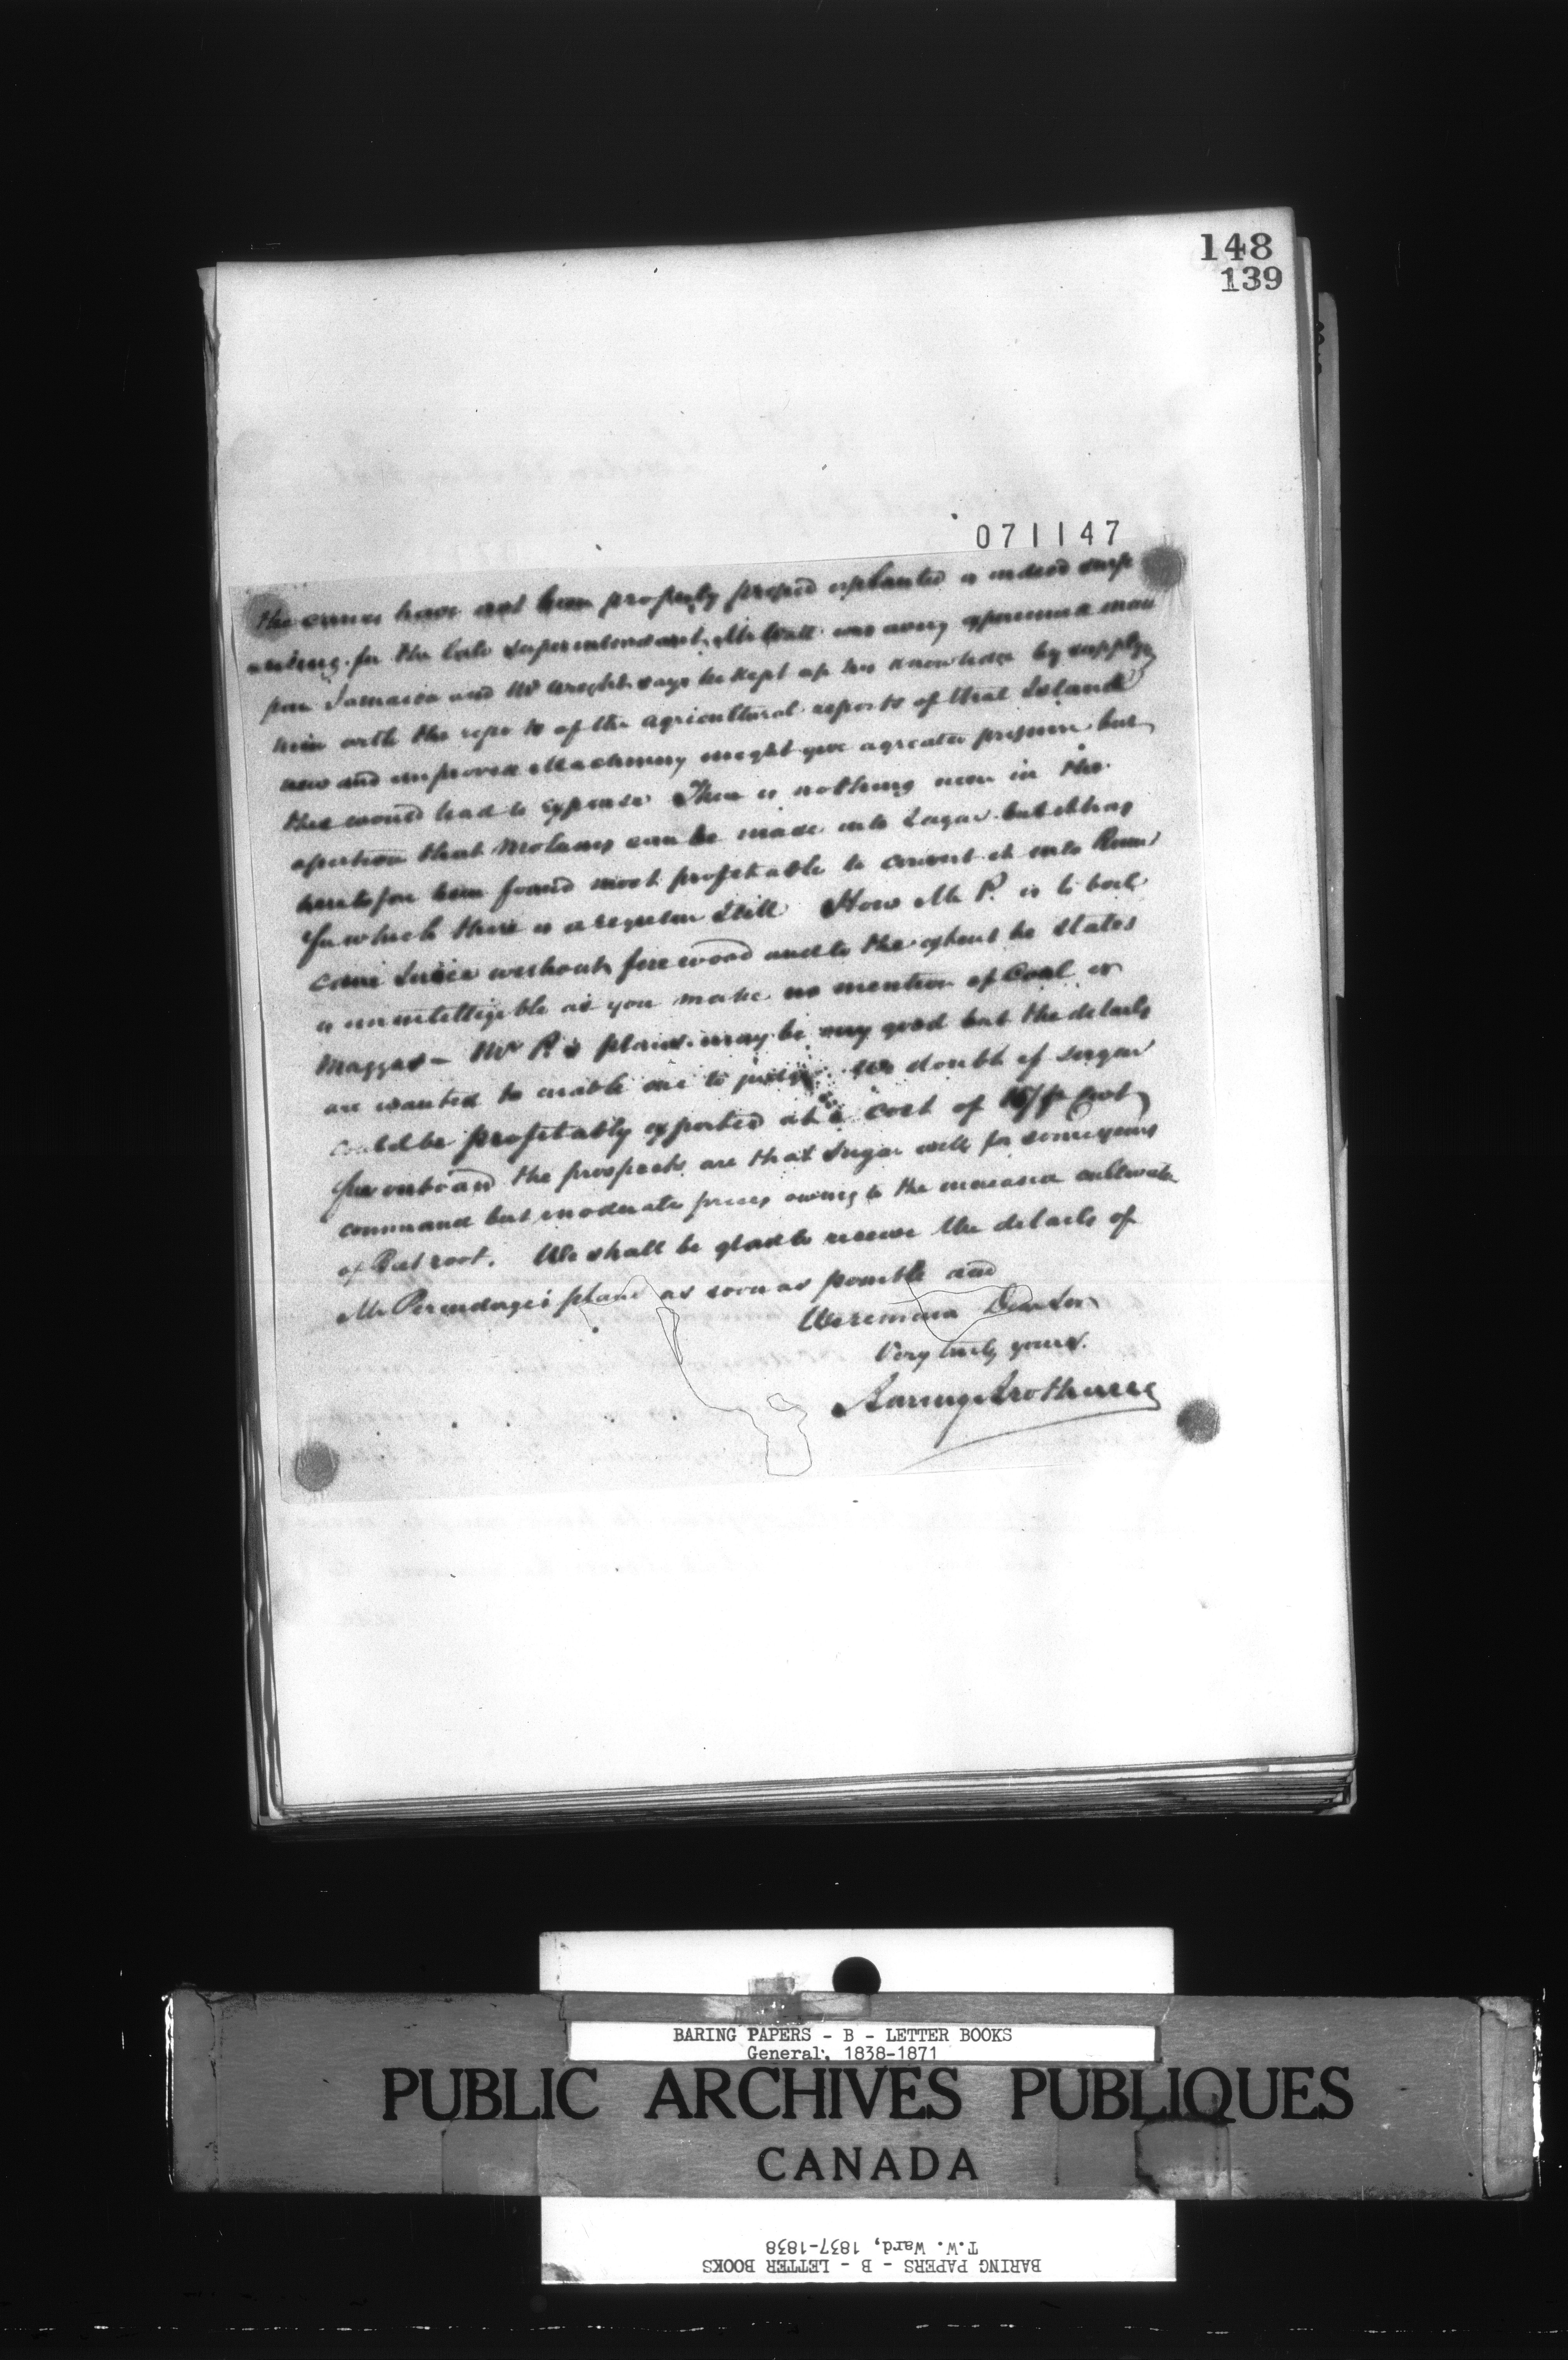 148
139
071147
the canes have not been properly pressed or planted is indeed surp
rising for the late superintendant Mr Watt was a very experienced man
from Jamaica and Mr Wright says he kept up his knowledge by supplying
him with the repo ts of the agricultural reports of that Island
new and improved Machinery might give a greater pressure but
this would lead to expense There is nothing new in the
assertion that Molasses can be made into Sugar but it has
heretofore been found most profitable to convert it into Rum
for which there is a regular Still How Mr P. is to boil
cane Juice without fire wood and to the extent he states
is unintelligible as you make no mention of Coal or
Maggas – Mr P.s plans may be very good but the details
are wanted to enable one to judge We doubt if sugar
could be profitably exported at a cost of p Cwt
free on board the prospects are that Sugar will for some years
command but moderate prices owing to the increased cultivate
of Beet root. We shall be glad to receive the details of
Mr plans as soon as possible and
We remain Dear Sir
Very truly yours.
Baring Brothers &
BARING PAPERS - B - LETTER BOOKS
General, 1838-1871
PUBLIC ARCHIVES PUBLIQUES
CANADA
BARING PAPERS - B - LETTER BOOKS
T.W. Ward, 1837-1838